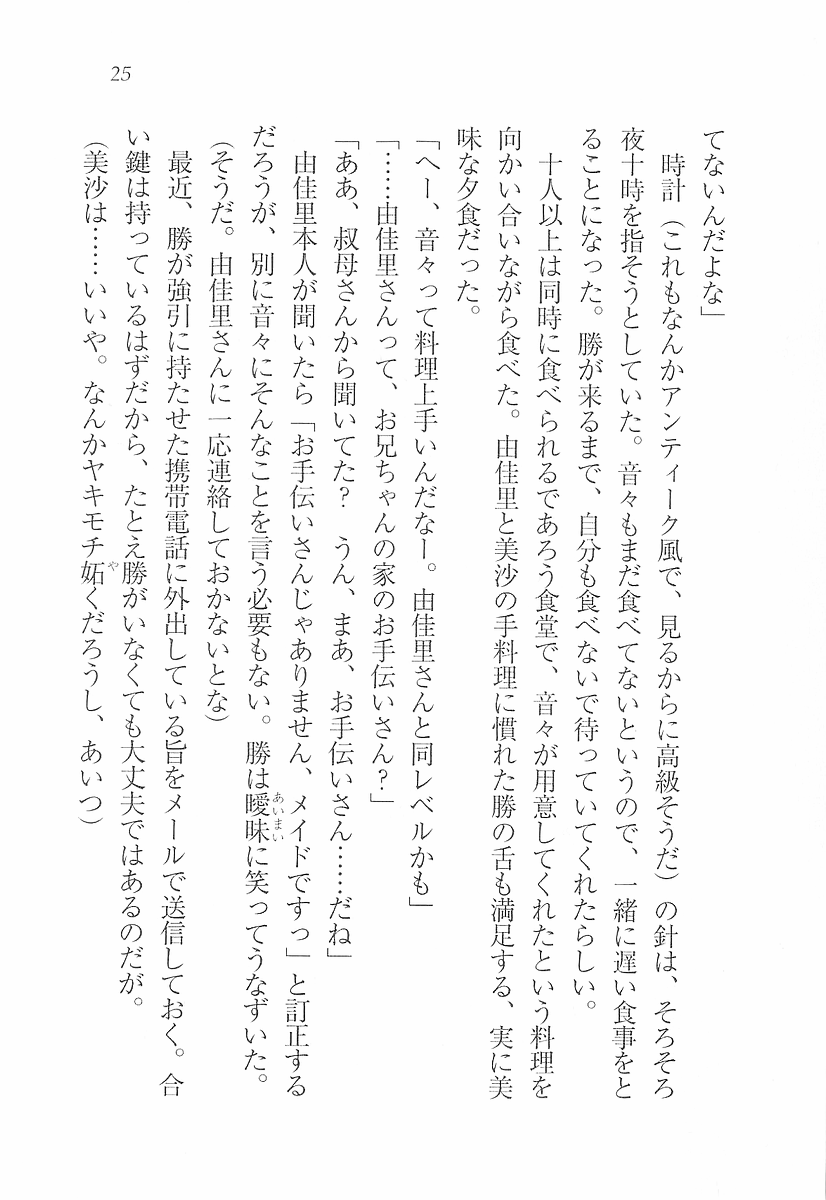 25
てないんだよな」
　時計（これもなんかアンティーク風で、見るからに高級そうだ）の針は、そろそろ
夜十時を指そうとしていた。音々もまだ食べてないというので、一緒に遅い食事をと
ることになった。勝が来るまで、自分も食べないで待っていてくれたらしい。
　十人以上は同時に食べられるであろう食堂で、音々が用意してくれたという料理を
向かい合いながら食べた。由佳里と美沙の手料理に慣れた勝の舌も満足する、実に美
味な夕食だった。
「へー、音々って料理上手いんだなー。由佳里さんと同レベルかも」
「……由佳里さんって、お兄ちゃんの家のお手伝いさん？」
「ああ、叔母さんから聞いてた？　うん、まあ、お手伝いさん……だね」
　由佳里本人が聞いたら「お手伝いさんじゃありません、メイドですっ」と訂正する
だろうが、別に音々にそんなことを言う必要もない。勝は曖昧（あいまい）に笑ってうなずいた。
（そうだ。由佳里さんに一応連絡しておかないとな）
　最近、勝が強引に持たせた携帯電話に外出している旨をメールで送信しておく。合
い鍵は持っているはずだから、たとえ勝がいなくても大丈夫ではあるのだが。
（美沙は……いいや。なんかヤキモチ妬（や）くだろうし、あいつ）